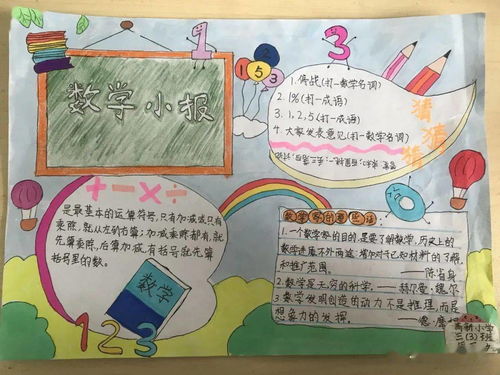 数学小报
1
1 5 3
3
1. 停战(打一数学名词)
2. 1%(打一成语)
3. 1,2,5(打一成语)
4. 大家发表意见(打一数学名词)
猜猜猜
+ - × ÷
是最基本的运算符号,只有加减或只有
乘除,就从左到右算;加减乘除都有,就
先算乘除,后算加减,有括号就先算
括号里的数。
数学
1 2 3
0
数学家的
1. 一个数学家的目的,是要了解数学,历史上的
数学进展不外两途:增加对于已知材料的了解,
和推广范围。
——陈省身
2. 数学是无穷的科学。——赫尔曼·魏尔
3 数学发明创造的动力不是推理,而是
想象力的发挥。——德·摩
高新小学
三(3)班